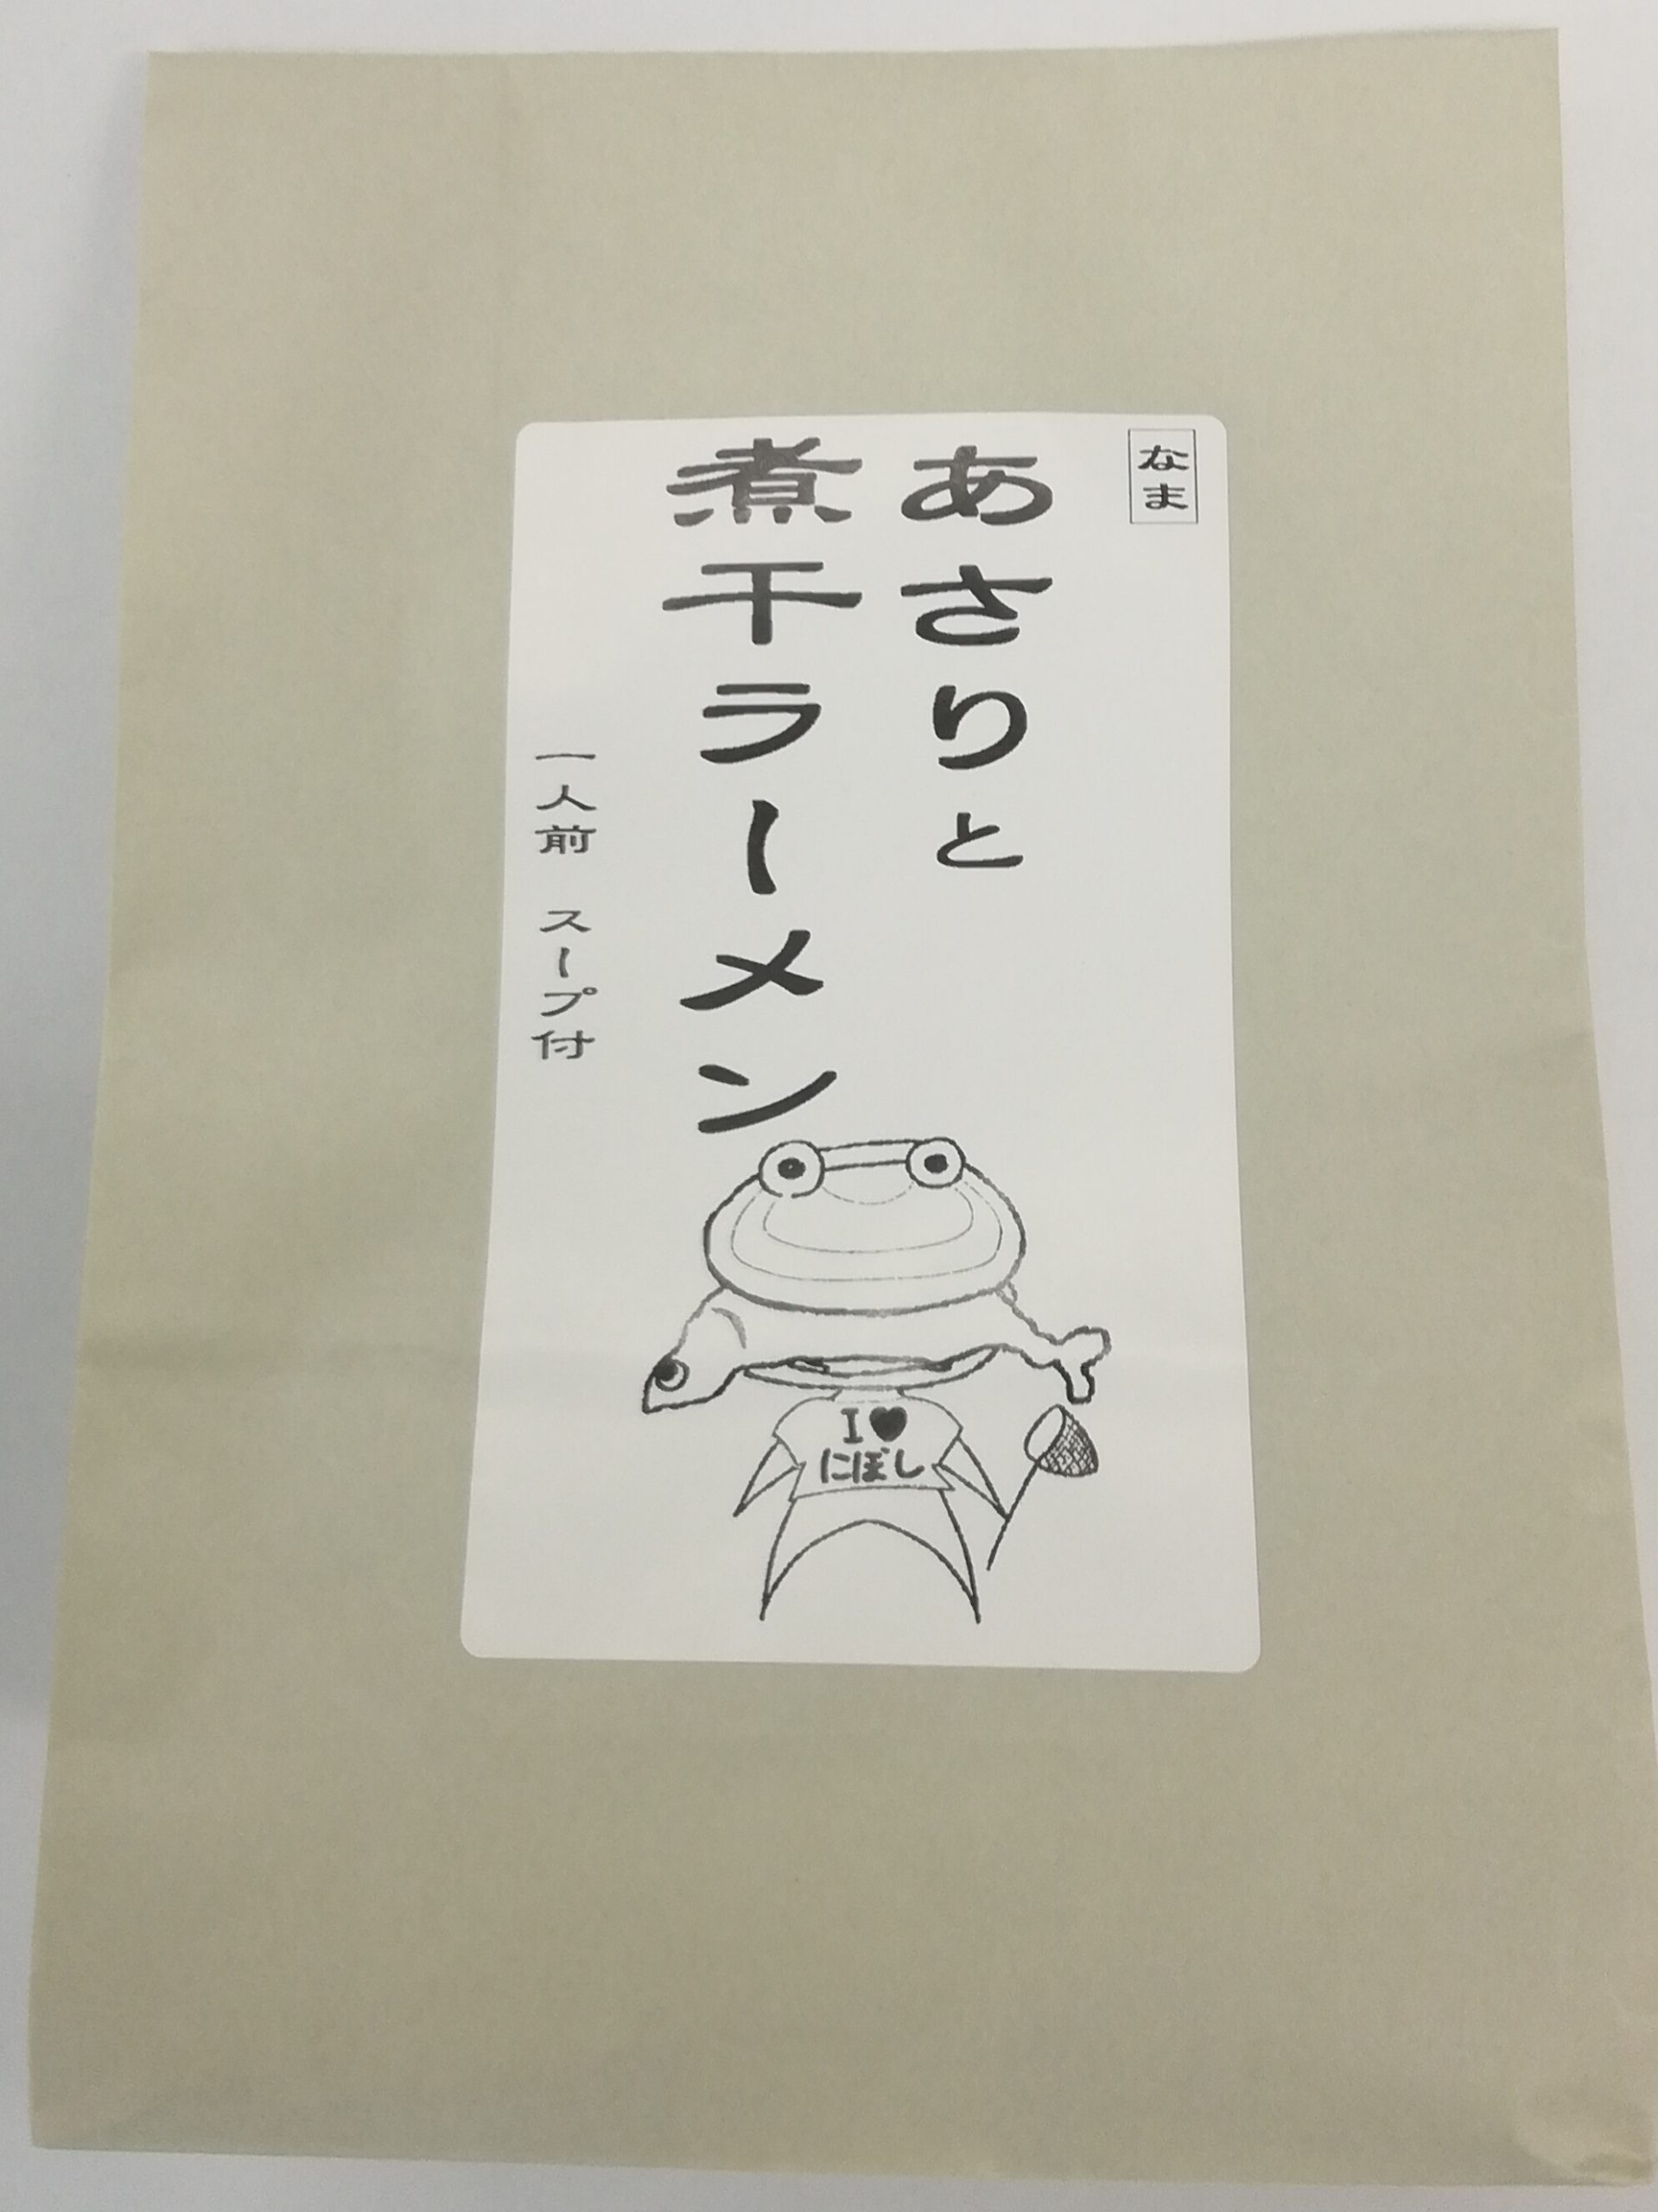 なま
あさりと
煮干ラーメン
一人前 スープ付
I♥
にぼし